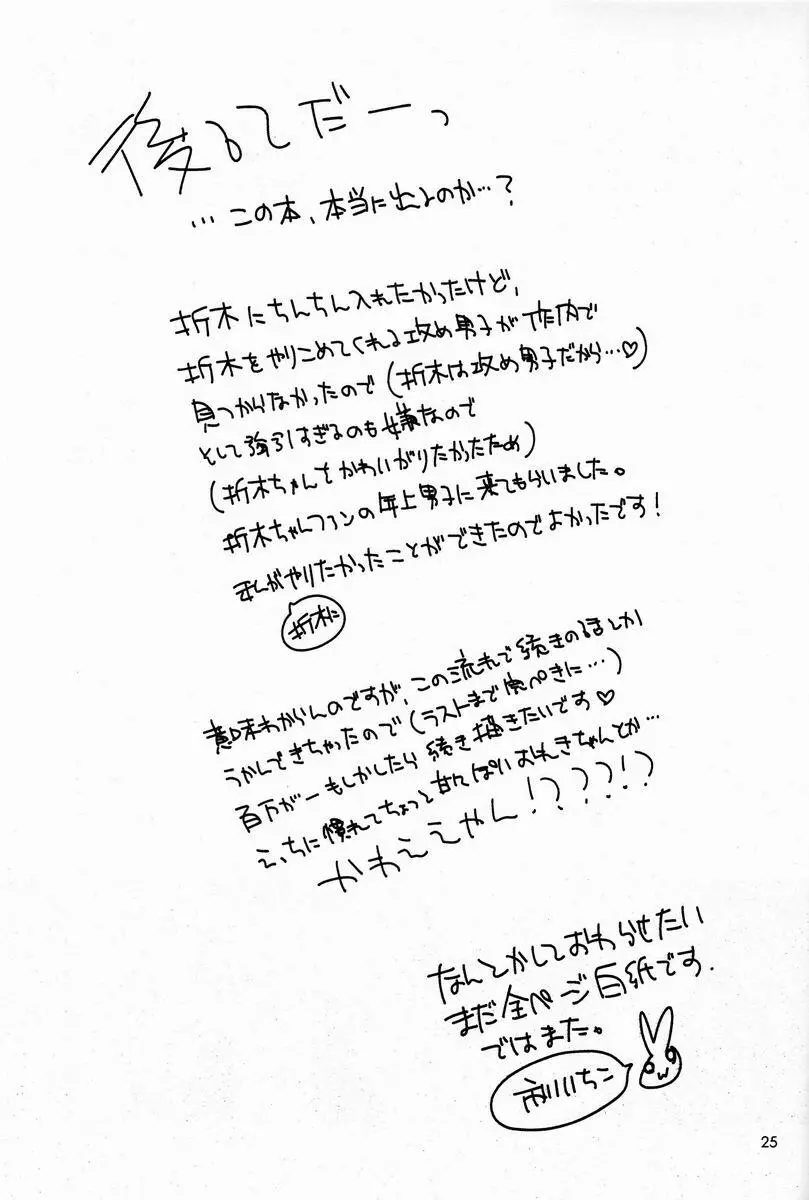 後がきだーっ
…この本、本当に出るのか…？
折木にちんちん入れたかったけど、
折木をやりこめてくれる攻め男子が作内で
見つからなかったので(折木は攻め男子だから…♡)
として強引すぎるのも嫌なので
(折木ちゃんをかわいがりたかったため)
折木ちゃんファンの年上男子に来てもらいました。
私がやりたかったことができたのでよかったです！
折木に
意味わからんのですが、この流れで続きのネームとか
うかんできちゃったので(ラストまで完ぺきに…)
百万が一もしかしたら続き描きたいです♡
えっちに慣れてちょっと甘えっぽいおれきちゃんとか…
かわええやん！？？？！？
なんとかしておわらせたい
まだ全ページ白紙です.
ではまた。
いちこ
25